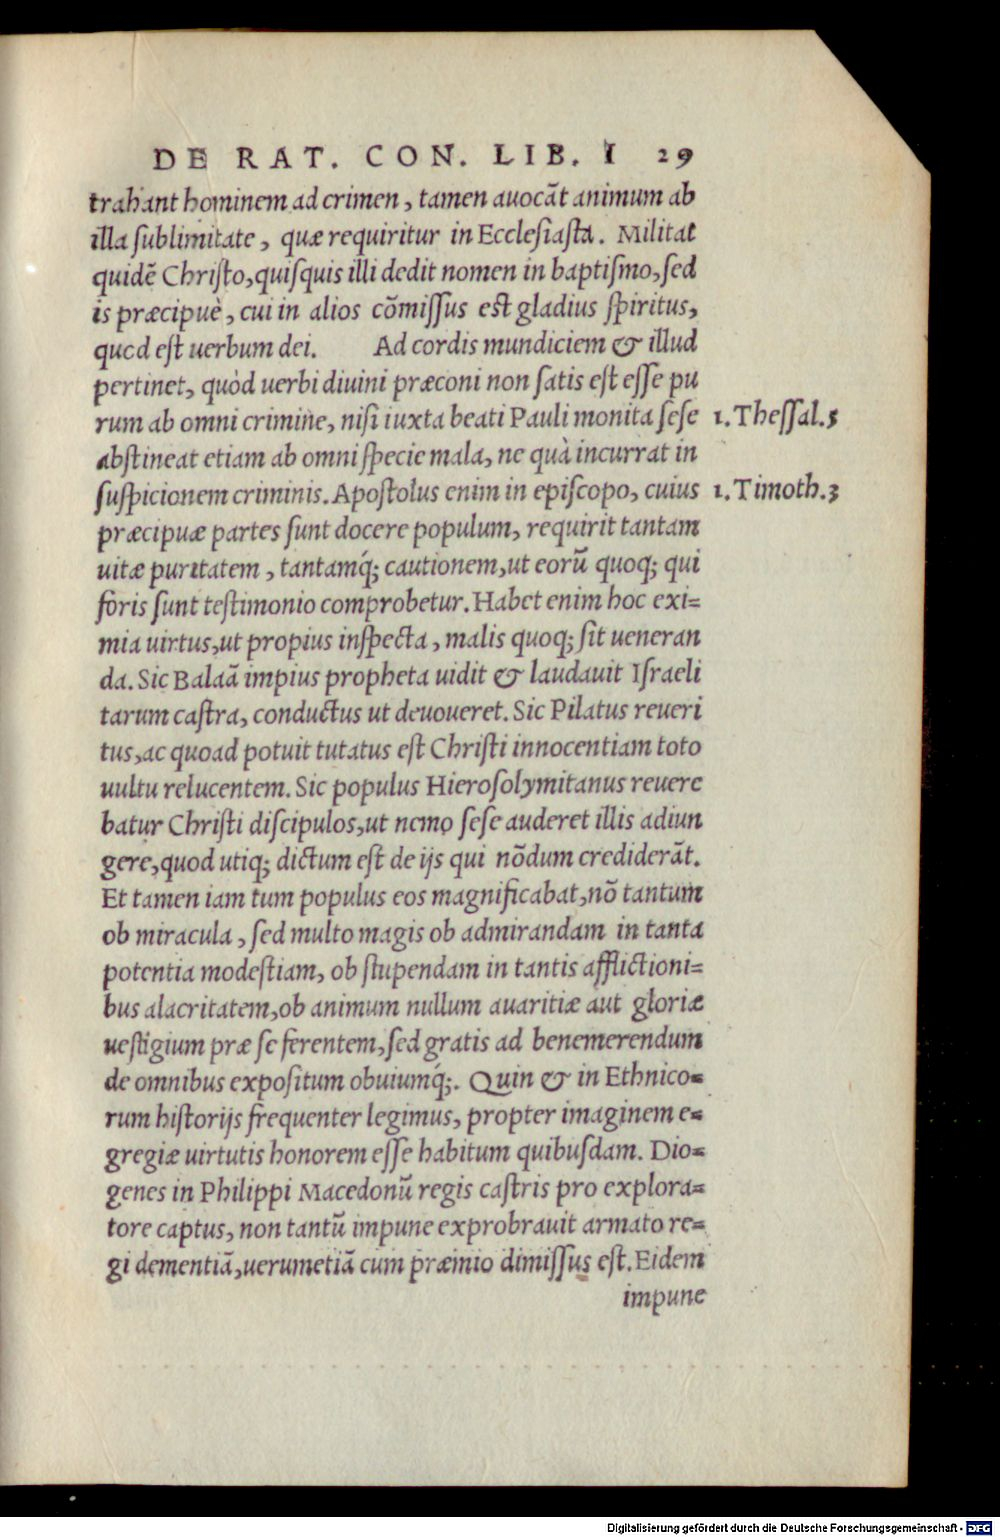 DE RAT. CON. LIB. I 29
trahant hominem ad crimen, tamen auocãt animum ab
illa ſublimitate, quæ requiritur in Eccleſiaſta. Militat
quidẽ Chriſto, quiſquis illi dedit nomen in baptiſmo, ſed
is præcipuè, cui in alios cõmiſſus eſt gladius ſpiritus,
quod eſt uerbum dei. Ad cordis mundiciem & illud
pertinet, quòd uerbi diuini præconi non ſatis eſt eſſe pu
rum ab omni crimine, niſi iuxta beati Pauli monita ſeſe 1. Theſſal. 5
abſtineat etiam ab omni ſpecie mala, ne quà incurrat in
ſuſpicionem criminis. Apoſtolus enim in epiſcopo, cuius 1. Timoth. 3
præcipuæ partes ſunt docere populum, requirit tantam
uitæ puritatem, tantamq́; cautionem, ut eorũ quoq; qui
foris ſunt teſtimonio comprobetur. Habet enim hoc exi=
mia uirtus, ut propius inſpecta, malis quoq; ſit ueneran
da. Sic Balaã impius propheta uidit & laudauit Iſraeli
tarum caſtra, conductus ut deuoueret. Sic Pilatus reueri
tus, ac quoad potuit tutatus eſt Chriſti innocentiam toto
uultu relucentem. Sic populus Hieroſolymitanus reuere
batur Chriſti diſcipulos, ut nemo ſeſe auderet illis adiun
gere, quod utiq; dictum eſt de ijs qui nõdum crediderãt.
Et tamen iam tum populus eos magnificabat, nõ tantum
ob miracula, ſed multo magis ob admirandam in tanta
potentia modeſtiam, ob ſtupendam in tantis afflictioni=
bus alacritatem, ob animum nullum auaritiæ aut gloriæ
ueſtigium præ ſe ferentem, ſed gratis ad benemerendum
de omnibus expoſitum obuiumq́;. Quin & in Ethnico=
rum hiſtorijs frequenter legimus, propter imaginem e=
gregiæ uirtutis honorem eſſe habitum quibuſdam. Dio=
genes in Philippi Macedonũ regis caſtris pro explora=
tore captus, non tantũ impune exprobrauit armato re=
gi dementiã, uerumetiã cum præmio dimiſſus eſt. Eidem
impune
Digitalisierung gefördert durch die Deutsche Forschungsgemeinschaft - DFG